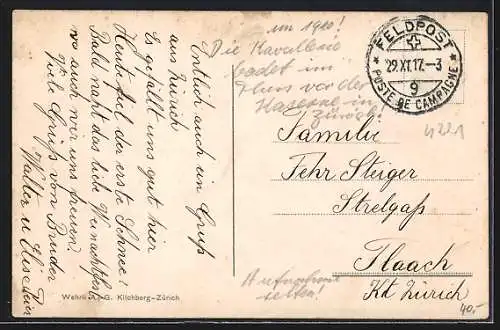 Endlich auch ein Gruß
aus Zürich
Es gefällt uns gut hier
Heute fiel der erste Schnee!
Bald naht das liebe Weihnachtsfest
wo auch wir uns freuen?
Viele Grüße von Bruder
Walter u
um 1910!
Die Kavallerie
badet im
Fluss vor der
Kaserne in
Zürich!
FELDPOST
29.XI.17.-3
9
POSTE DE CAMPAGNE
4221
Familie
Fehr Steiger
Strelgaß
Flaach
Kt Zürich
Aufnahme
selten!
40.-
Wehrli A.-G. Kilchberg-Zürich